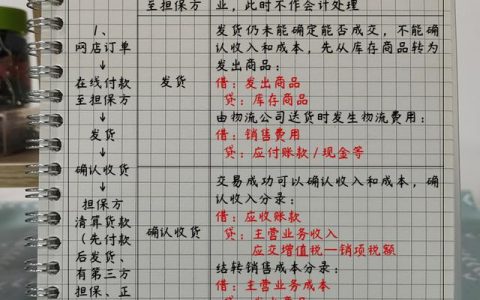 至担保方
业，此时不作会计处理
1、
网店订单
↓
在线付款
至担保方
↓
发货
↓
确认收货
↓
担保方
清算货款
（先付款
后发货、
有第三方
担保、正
发货
发货仍未能确定能否成交，不能确
认收入和成本，先从库存商品转为
发出商品：
借：发出商品
贷：库存商品
由物流公司送货时发生物流费用：
借：销售费用
贷：应付账款/现金等
确认收货
交易成功可以确认收入和成本，确
认收入分录：
借：应收账款
贷：主营业务收入
应交增值税—销项税额
结转销售成本分录：
借：主营业务成本
贷：发出商品